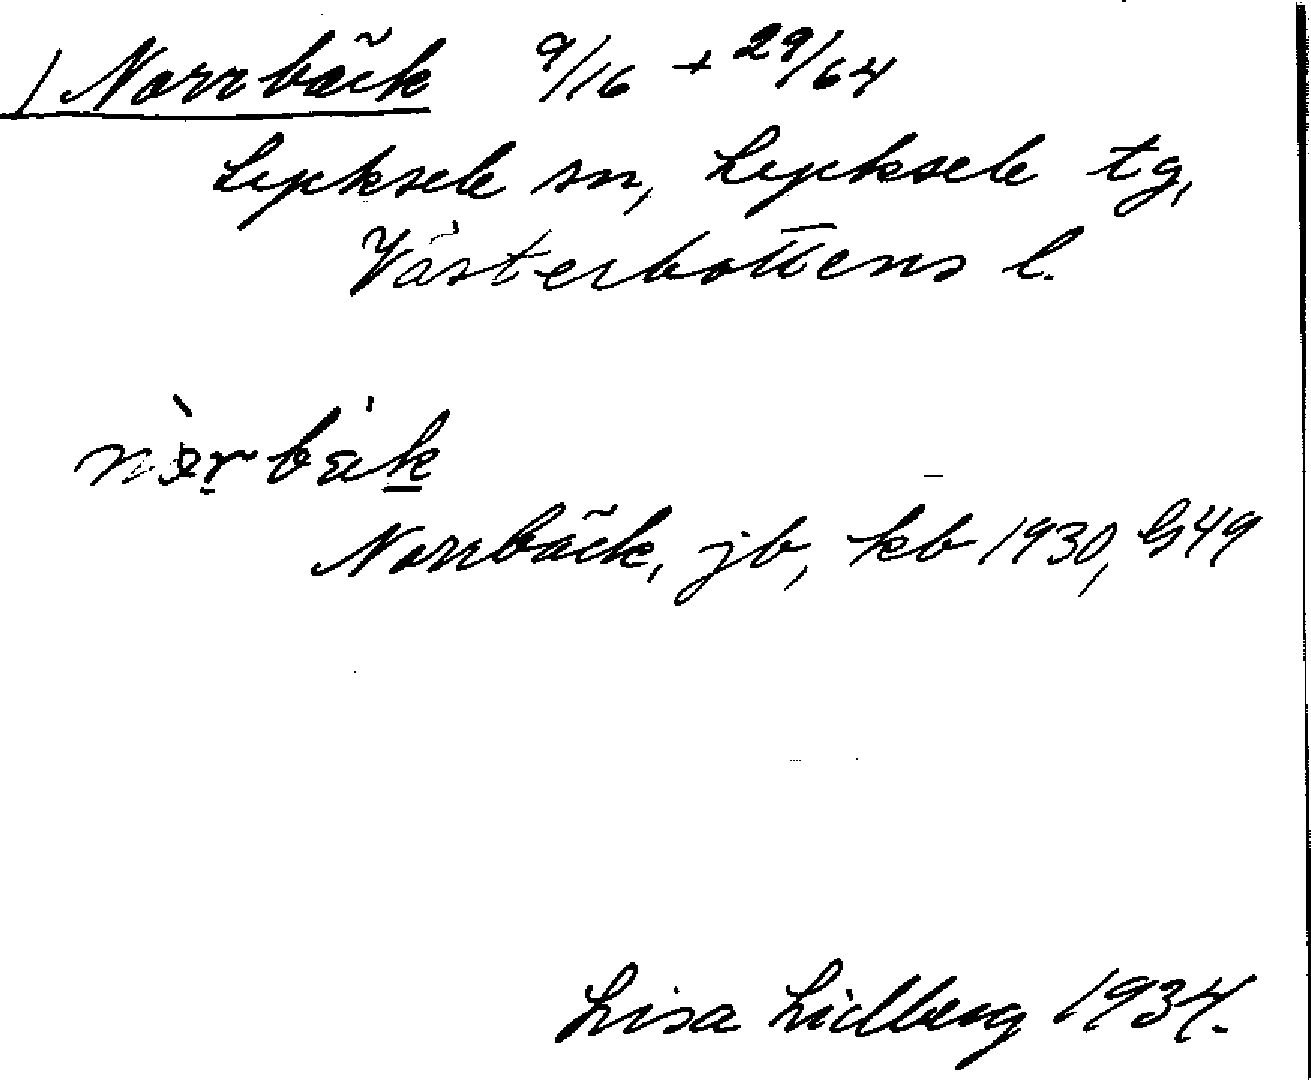 / Norrbäck 9/16 + 29/64
Lycksele sn, Lycksele tg,
Västerbottens l.
nòrbäk
Norrbäck, jb, kb 1930, G49
Lisa Lidberg 1934.